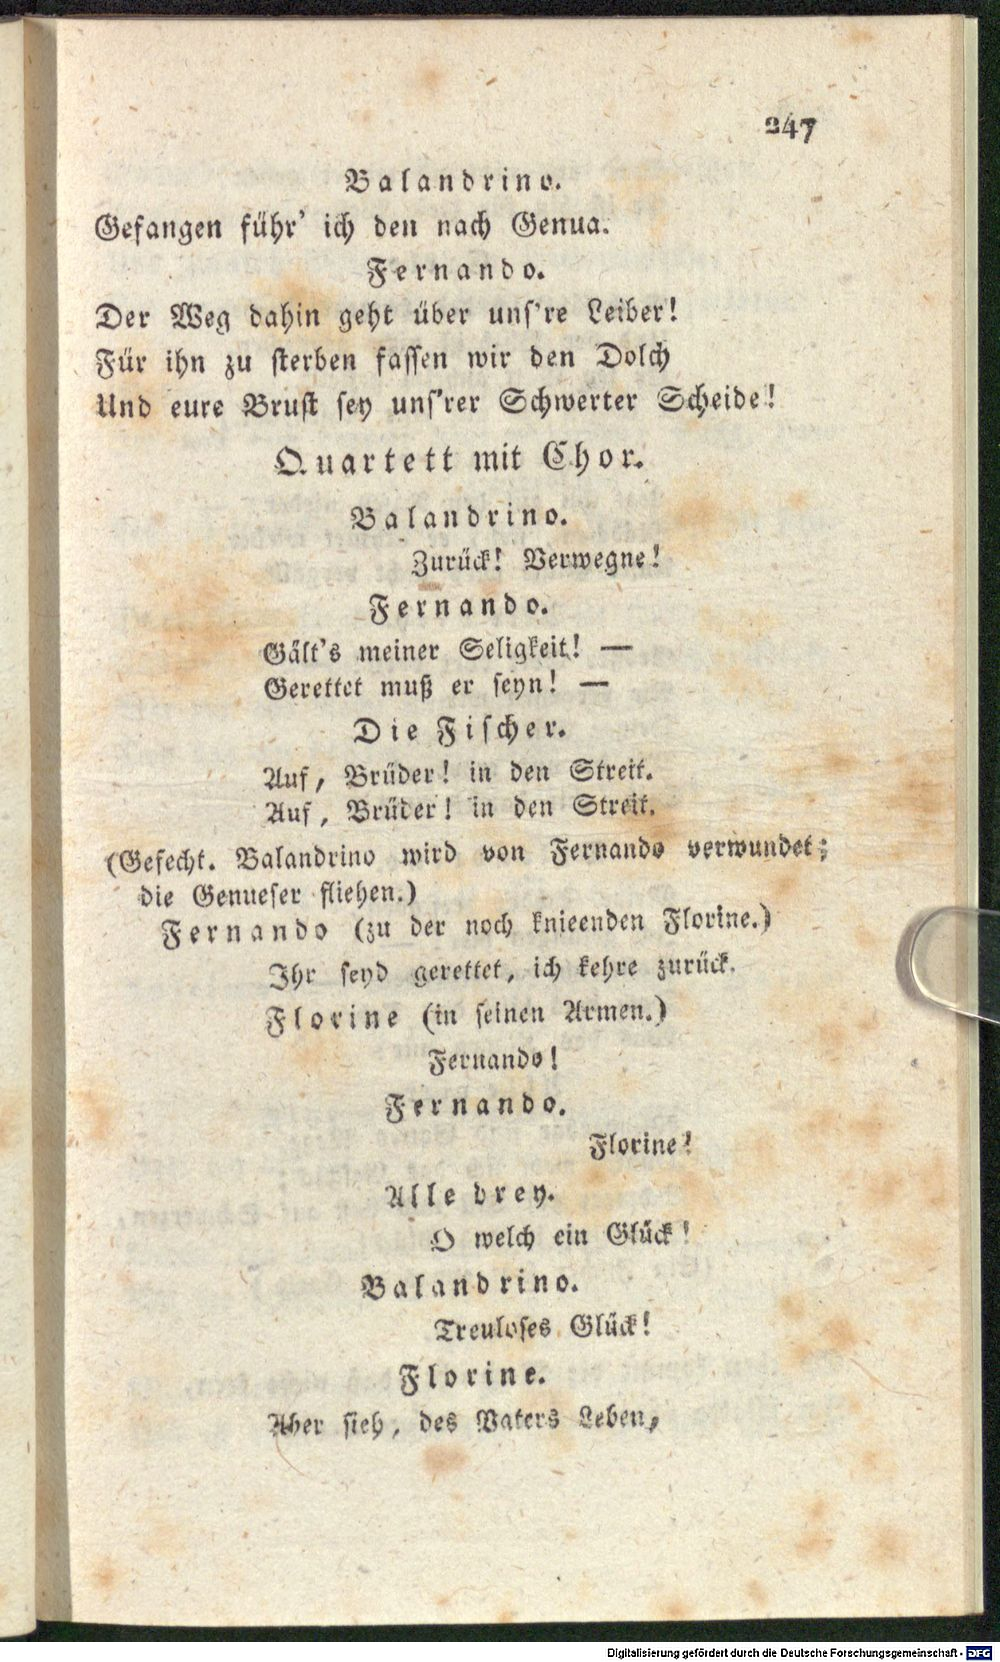 247
Balandrino.
Gefangen führ' ich den nach Genua.
Fernando.
Der Weg dahin geht über uns're Leiber!
Für ihn zu sterben fassen wir den Dolch
Und eure Brust sey uns'rer Schwerter Scheide!
Quartett mit Chor.
Balandrino.
Zurück! Verwegne!
Fernando.
Gält's meiner Seligkeit! —
Gerettet muß er seyn! —
Die Fischer.
Auf, Brüder! in den Streit.
Auf, Brüder! in den Streit.
(Gefecht. Balandrino wird von Fernando verwundet;
die Genueser fliehen.)
Fernando (zu der noch knieenden Florine.)
Ihr seyd gerettet, ich kehre zurück.
Florine (in seinen Armen.)
Fernando!
Fernando.
Florine!
Alle drey.
O welch ein Glück!
Balandrino.
Treuloses Glück!
Florine.
Aber sieh, des Vaters Leben,
Digitalisierung gefördert durch die Deutsche Forschungsgemeinschaft - DFG